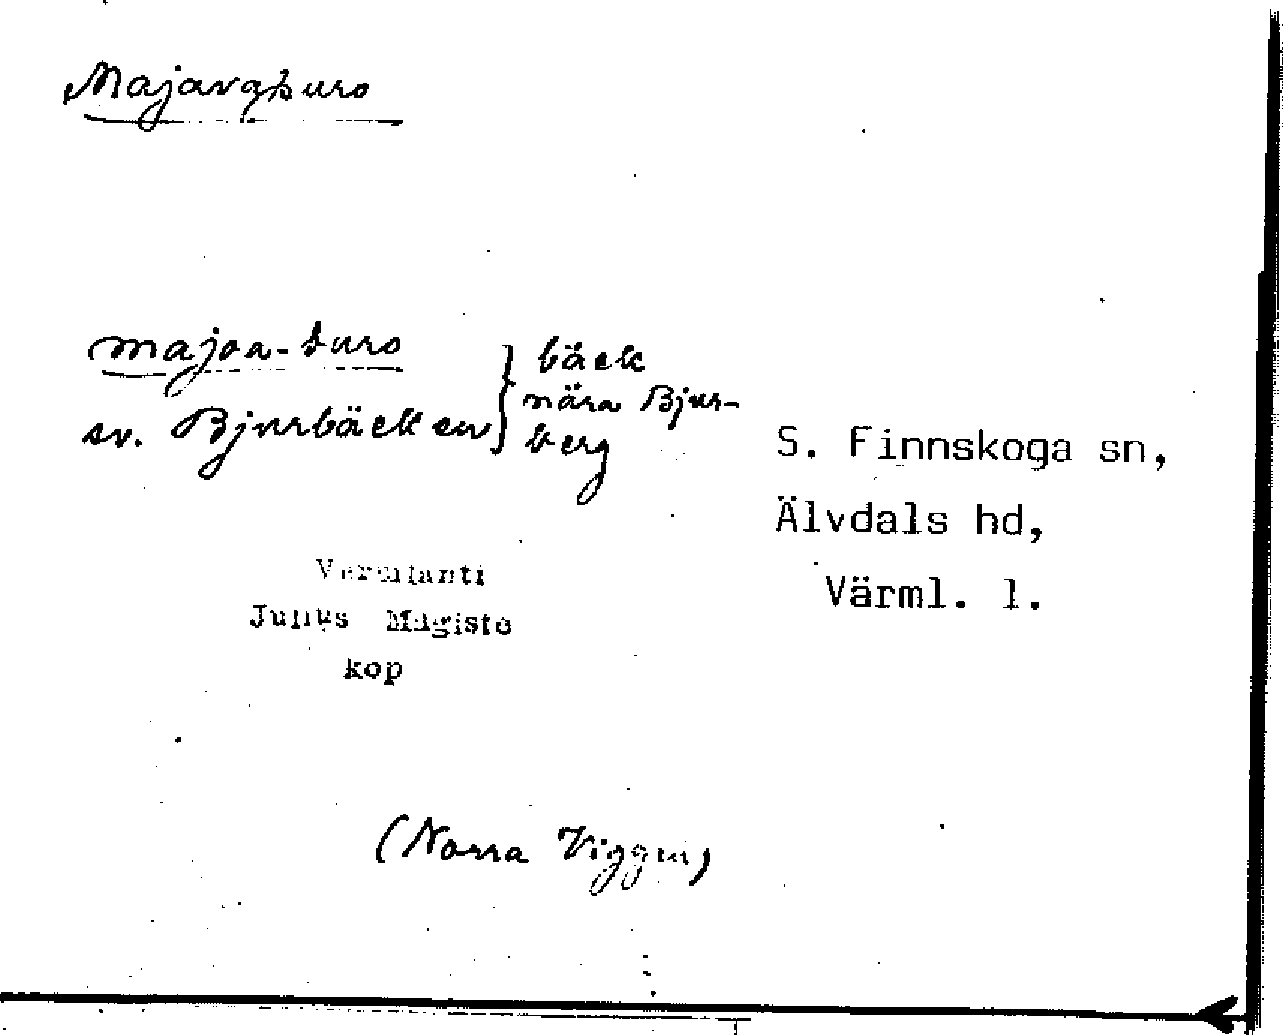 Majavapuro
majoa-puro
sv. Bjurbäcken } bäck
nära Bjur-
berg
S. Finnskoga sn,
Älvdals hd,
Värml. l.
Vermlanti
Julius Mägiste
kop
(Norra Viggen)